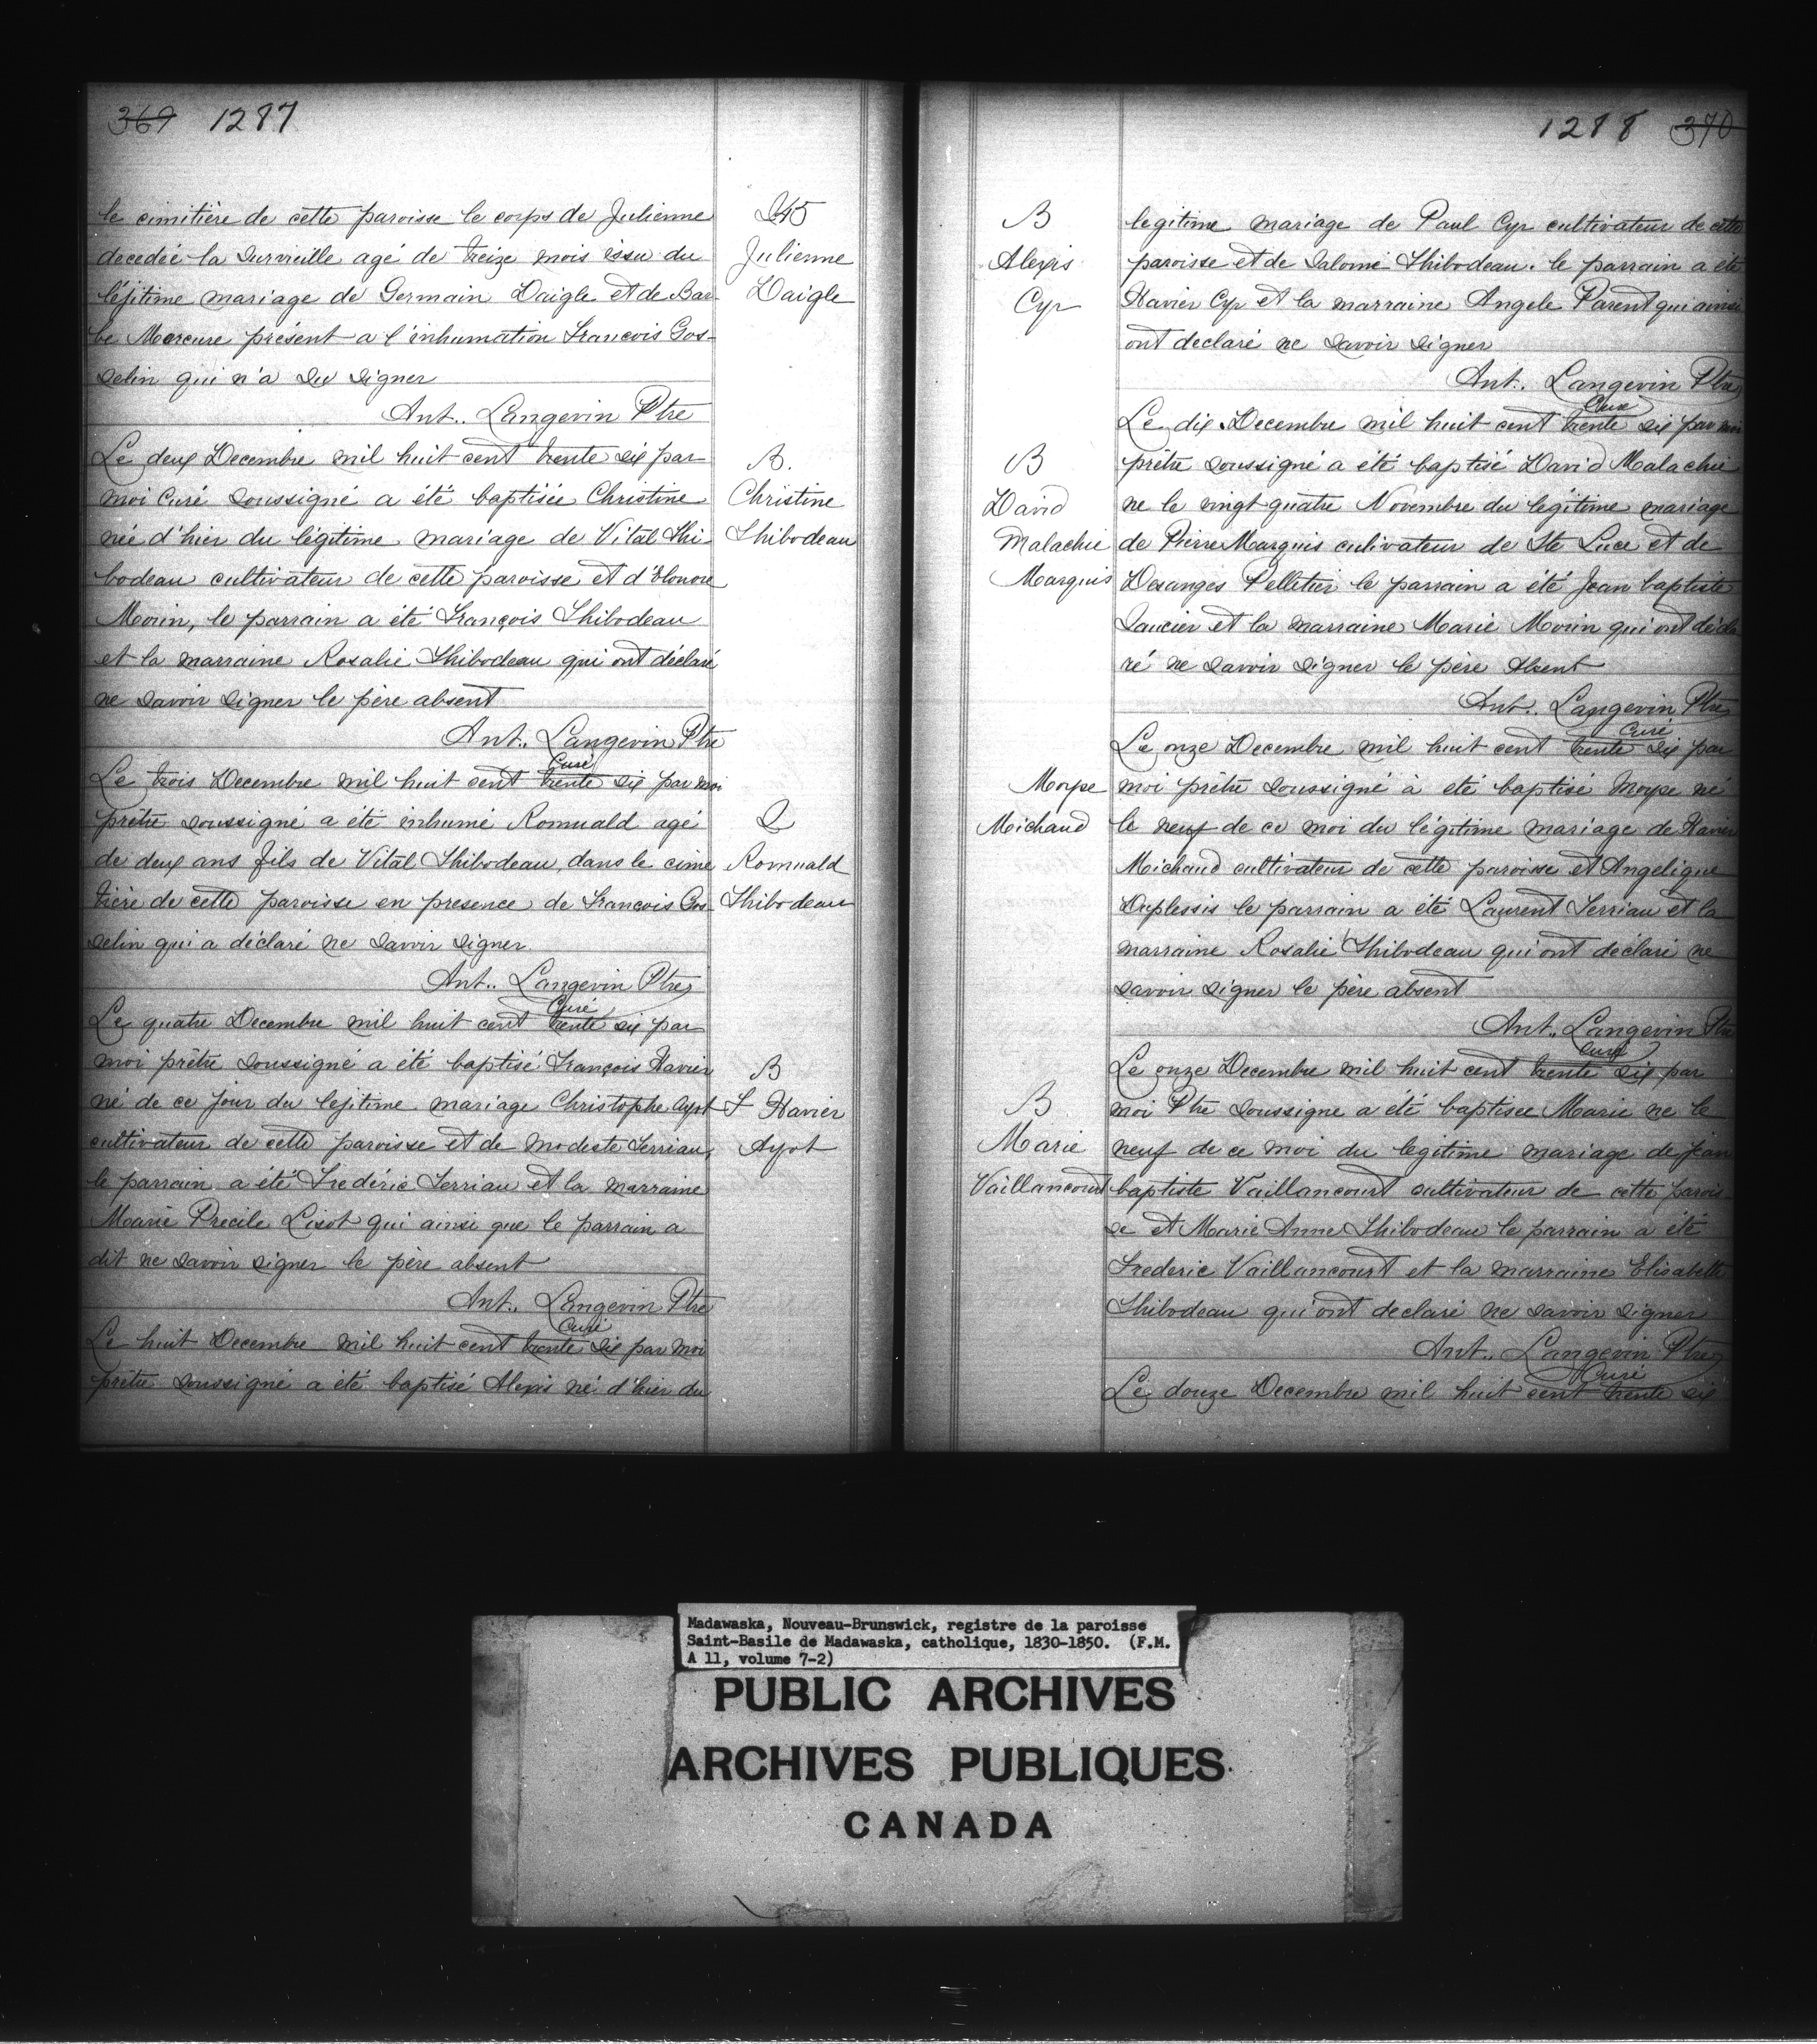 369 1287
le cimitière de cette paroisse le corps de Julienne
decedée la surveille agé de treize mois issu du
léjitime mariage de Germain Daigle et de Bar-
be Mercure présent a l'inhumation Francois Gos-
selin qui n'a su signer
Ant.. Langevin Ptre
Le deux Decembre mil huit cent trente six par
moi Curé soussigné a été baptisée Christine
née d'hier du légitime mariage de Vital Thi-
bodeau cultivateur de cette paroisse et d'Elonore
Morin, le parrain a été François Thibodeau
et la marraine Rosalie Thibodeau qui ont déclaré
ne savoir signer le père absent
Ant.. Langevin Ptre
Curé
Le trois Decembre mil huit cent trente six par moi
prêtre soussigné a été inhumé Romuald agé
de deux ans fils de Vital Thibodeau, dans le cime
tière de cette paroisse en presence de Francois Gos-
selin qui a déclaré ne savoir signer.
Ant.. Langevin Ptre
Curé
Le quatre Decembre mil huit cent trente six par
moi prêtre soussigné a été baptisé François Xavier
né de ce jour du lejitime mariage Christophe Ayot
cultivateur de cette paroisse et de modeste Terriau,
le parrain a été Frederic Terriau et la marraine
Marie Precile Lizot qui ainsi que le parrain a
dit ne savoir signer le père absent
Ant.. Langevin Ptre
Curé
Le huit Decembre mil huit cent trente six par moi
prêtre soussigné a été baptisé Alexis né d'hier du
S45
Julienne
Daigle
B.
Christine
Thibodeau
S
Romuald
Thibodeau
B
F Xavier
Ayot
1288 370
B
Alexis
Cyr
B
David
Malachie
Marquis
Moyse
Michaud
B
Marie
Vaillancourt
legitime mariage de Paul Cyr cultivateur de cette
paroisse et de Salomé Thibodeau. le parrain a été
Xavier Cyr et la marraine Angele Parent qui ainsi
ont declaré ne savoir signer
Ant.. Langevin Ptre
Curé
Le dix Decembre mil huit cent trente six par moi
prêtre soussigné a été baptisé David Malachie
ne le vingt quatre Novembre du legitime mariage
de Pierre Marquis cultivateur de Ste Luce et de
Desanges Pelletier le parrain a été Jean baptiste
Saucier et la marraine Marie Morin qui ont décla
ré ne savoir signer le père absent
Ant.. Langevin Ptre
Curé
Le onze Decembre mil huit cent trente six par
moi prêtre soussigné à eté baptisé Moyse né
le neuf de ce moi du légitime mariage de Xavier
Michaud cultivateur de cette paroisse et Angelique
Duplessis le parrain a été Laurent Terriau et la
marraine Rosalie Thibodeau qui ont declaré ne
savoir signer le père absent
Ant.. Langevin Ptre
Curé
Le onze Decembre mil huit cent trente six par
moi Ptre soussigne a été baptisee Marie ne le
neuf de ce moi du legitime mariage de Jean
baptiste Vaillancourt cultivateur de cette parois
se et Marie Anne Thibodeau le parrain a été
Frederic Vaillancourt et la marraine Elisabeth
Thibodeau qui ont declaré ne savoir signer
Ant.. Langevin Ptre
Curé
Le douze Decembre mil huit cent trente six
Madawaska, Nouveau-Brunswick, registre de la paroisse
Saint-Basile de Madawaska, catholique, 1830-1850. (F.M.
A 11, volume 7-2)
PUBLIC ARCHIVES
ARCHIVES PUBLIQUES
CANADA